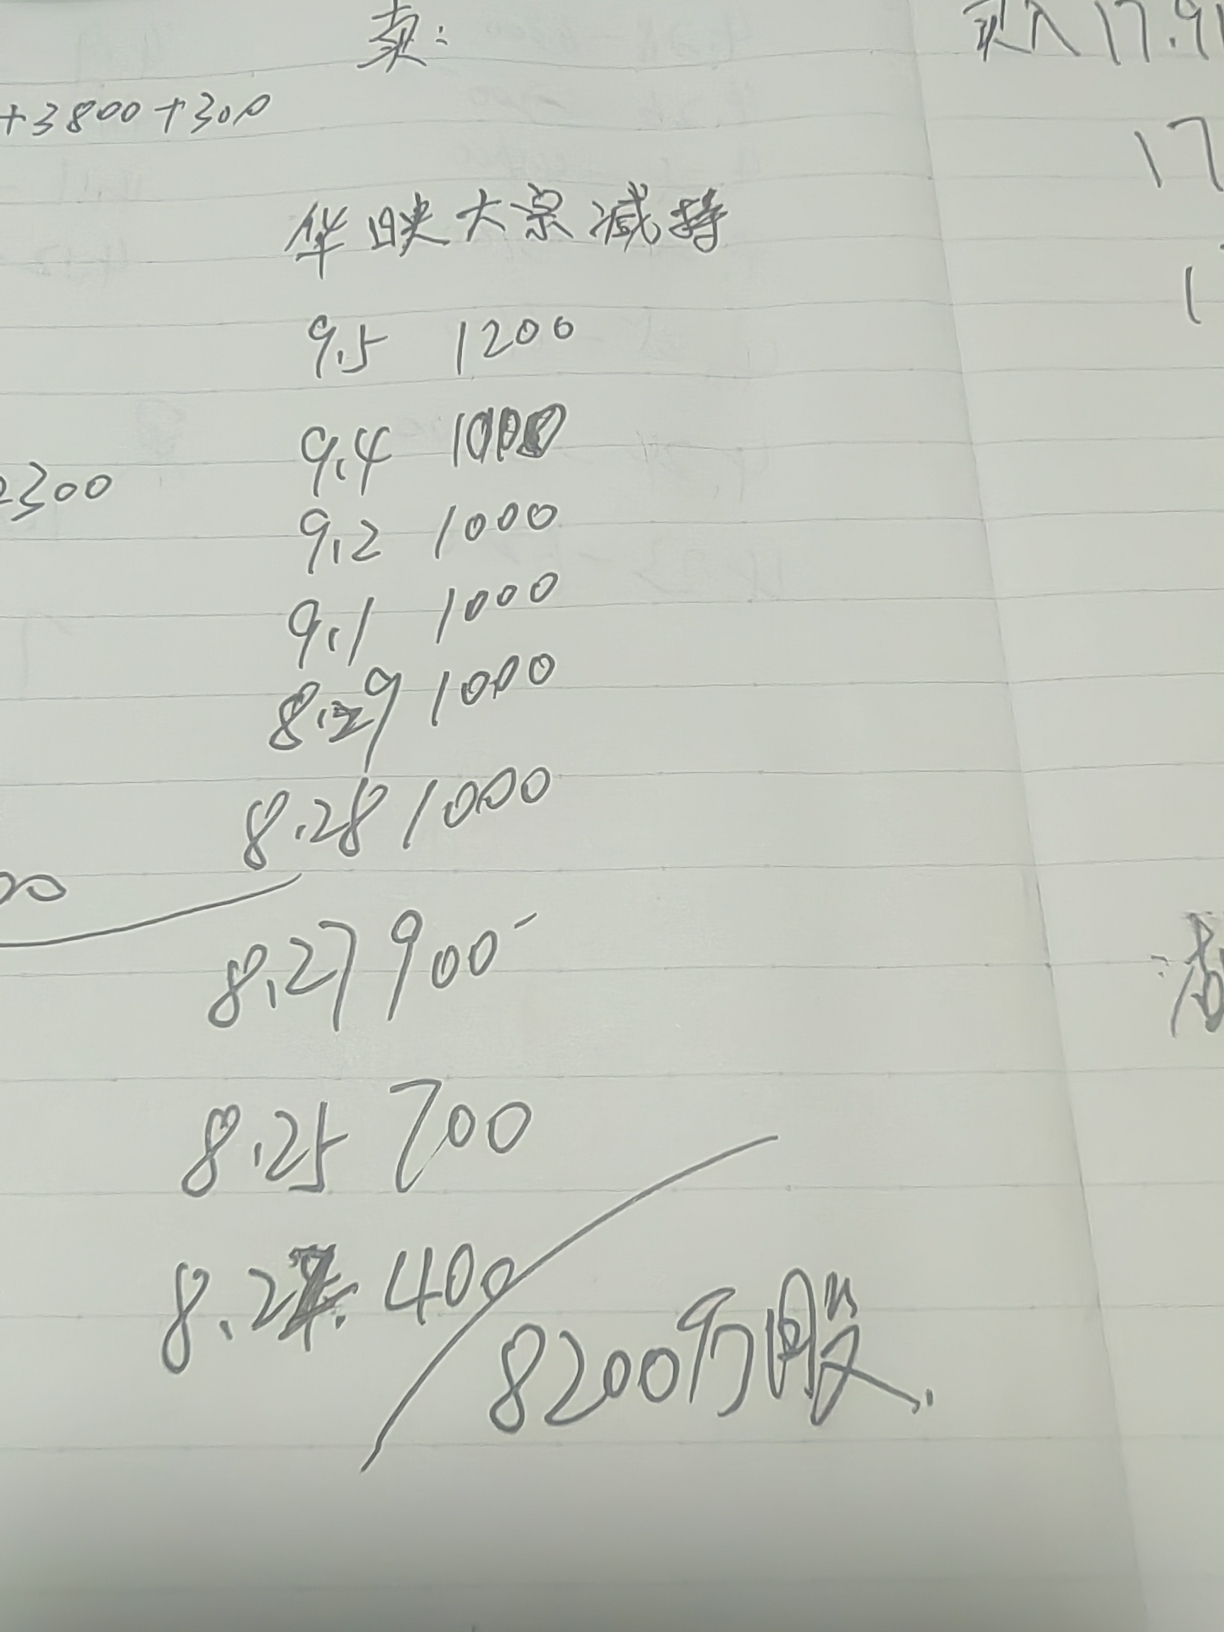 卖:
买入 17.91
+3800+300
17
华映大宗减持
1
9.5 1200
9.4 1000
2300
9.2 1000
9.1 1000
8.29 1000
8.28 1000
00
8.27 900
8.25 700
8.2 400
8200万股.